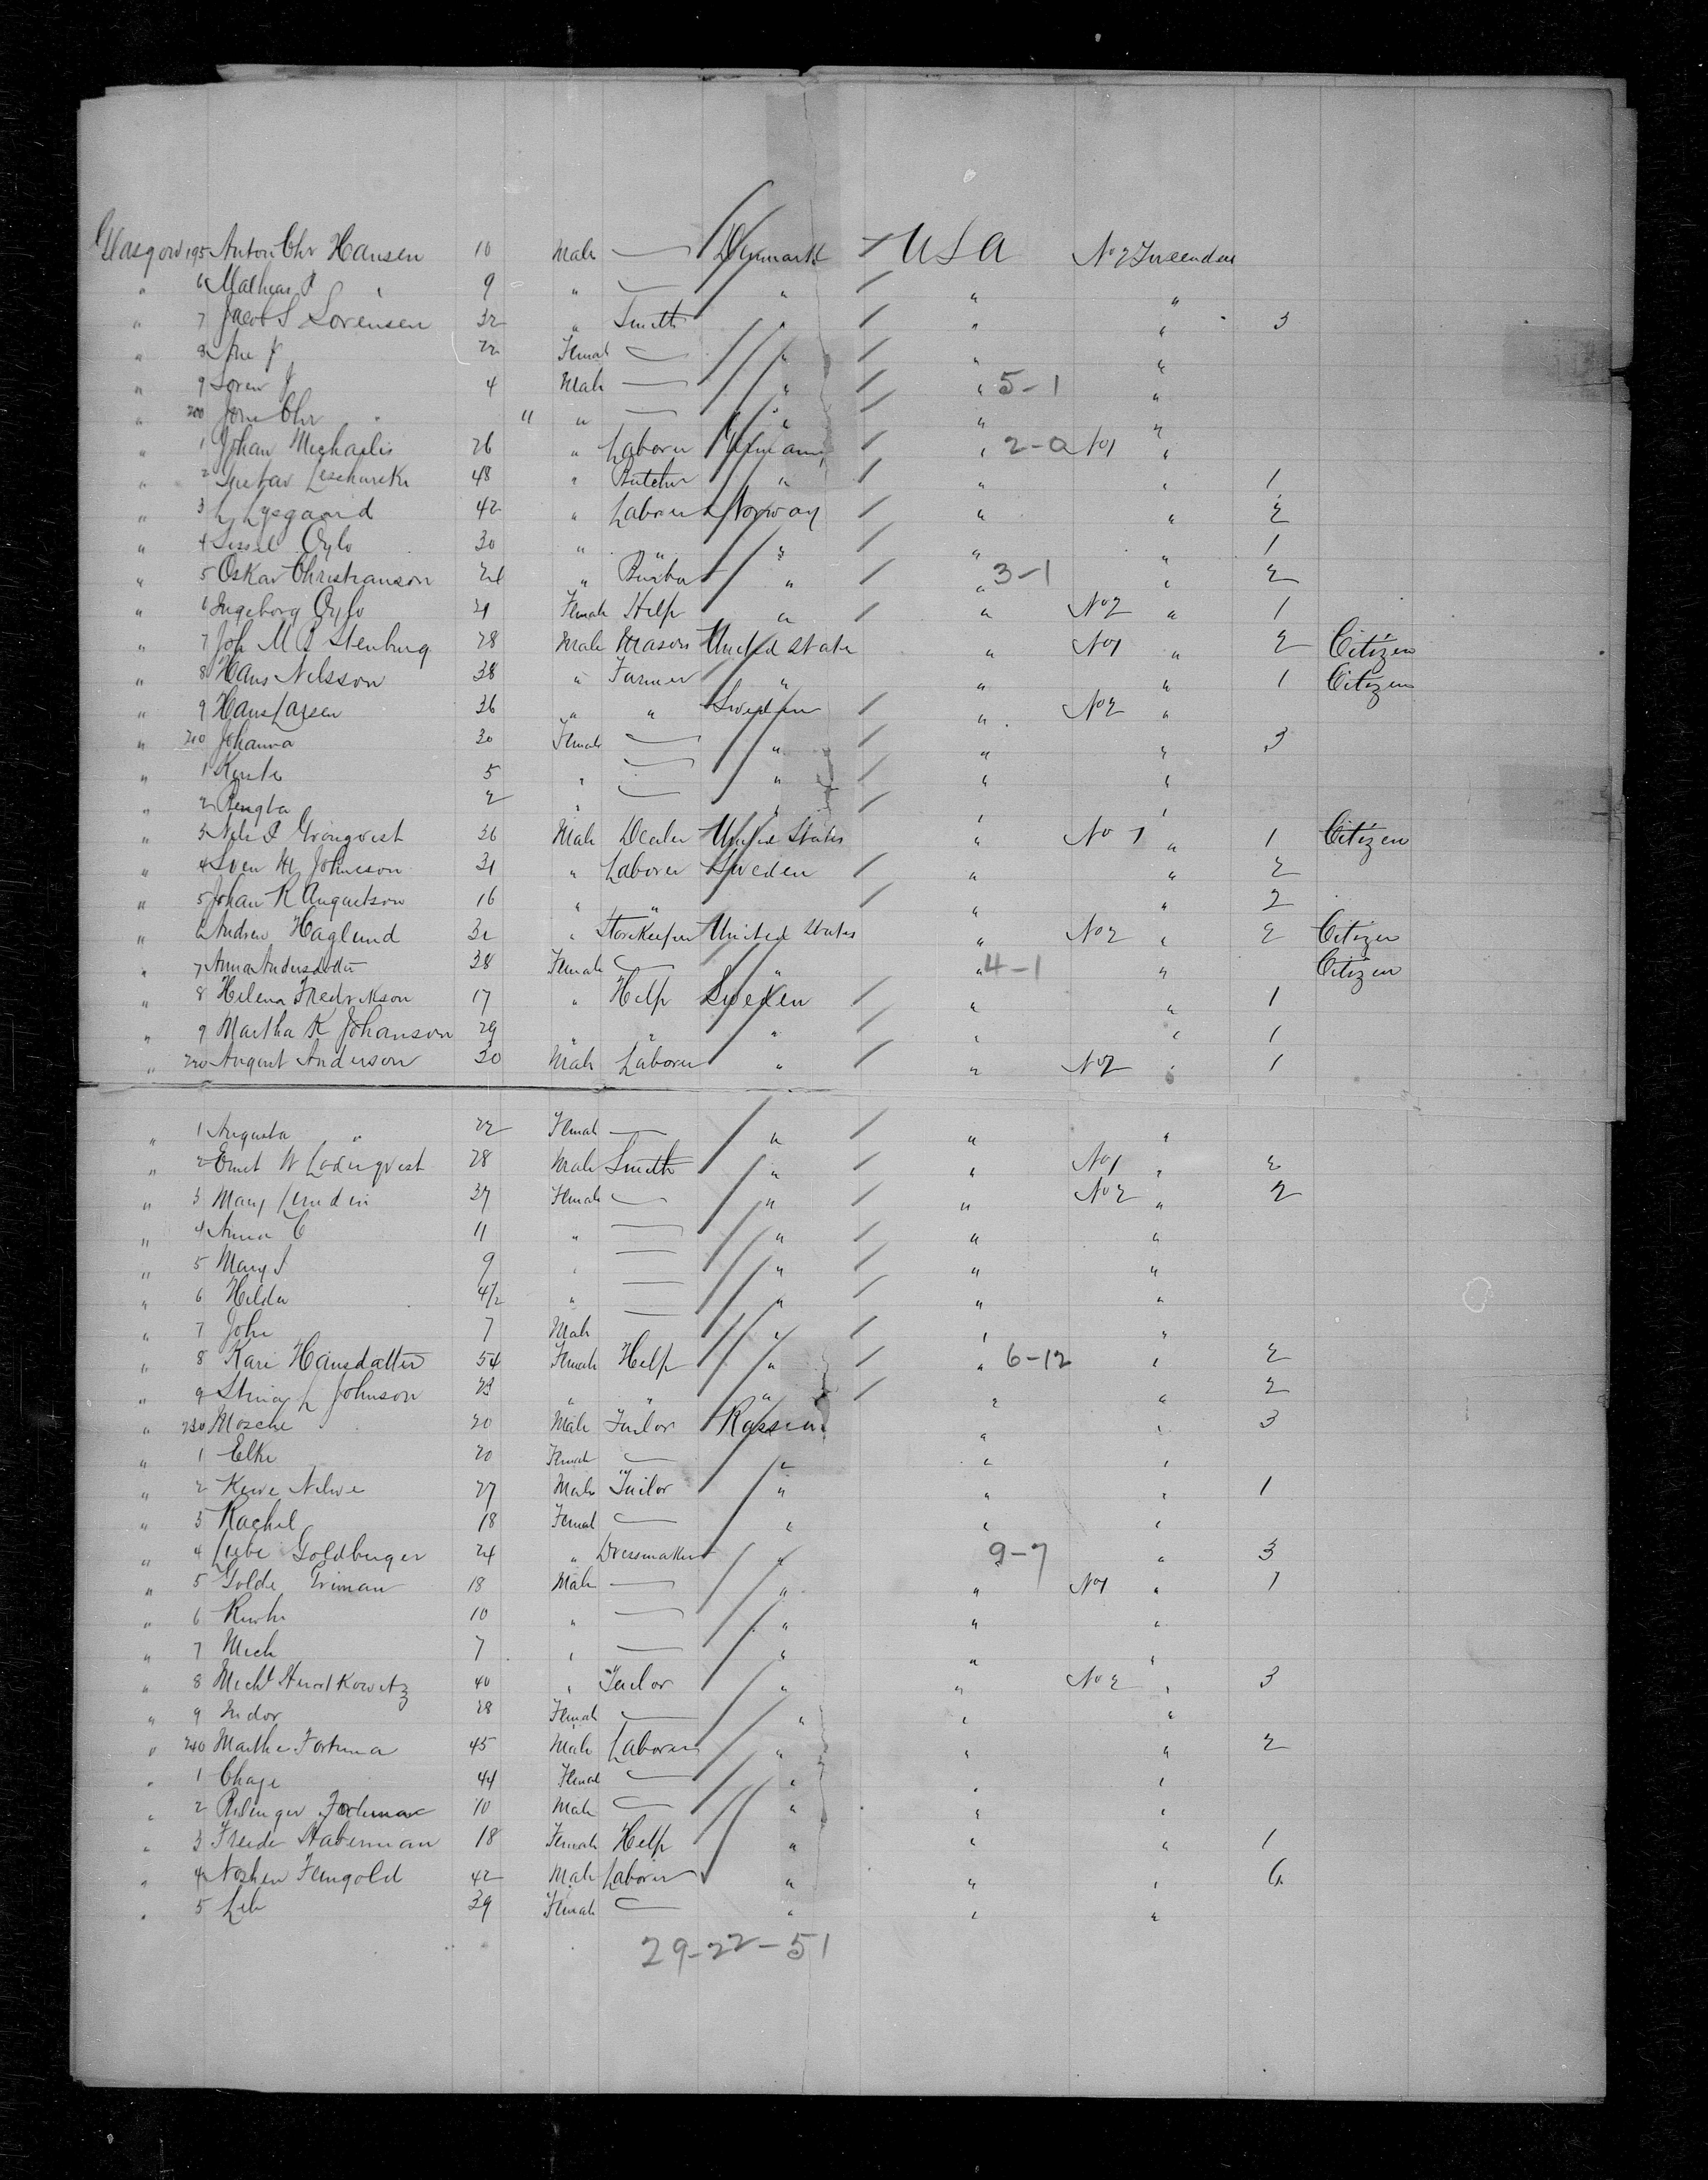 Glasgow 195 Anton Chr Hansen 10 Male — Denmark USA No 2
" 6 Mathias P " 9 " — " " "
" 7 Jacob S Sorensen 32 " Smith " " " 3
" 8 22 Female — " " "
" 9 Soren J 4 Male — " " 5-1 "
" 200 Jens Chr " " " — " " "
" 1 Johan Michaelis 26 " Laborer Germany " 2-0 No 1 "
" 2 Gustav 48 " Butcher " " " 1
" 3 L Lysgaard 42 " Laborer Norway " " 2
" 4 30 " " " " " 1
" 5 Oskar Christianson 24 " " " 3-1 " 2
" 6 Ingeborg 21 Female Help " " No 2 " 1
" 7 Joh M P Stenburg 28 Male Mason United State " No 1 " 2 Citizen
" 8 Hans Nilsson 38 " Farmer " " " 1 Citizen
" 9 Hans Larsen 36 " " Sweden " No 2 "
" 210 Johanna 30 Female — " " " 3
" 1 5 " — " " "
" 2 Bengta 2 " — " " "
" 3 Nils P Gronqvist 36 Male Dealer United States " No 1 " 1 Citizen
" 4 Sven M Johnson 31 " Laborer Sweden " " 2
" 5 Johan K Augustson 16 " " " " 2
" 6 Andrew Haglund 32 " Storekeeper United States " No 2 " 2 Citizen
" 7 Anna Andersdotter 38 Female — " " 4-1 " Citizen
" 8 Helena Fredrikson 17 " Help Sweden " " 1
" 9 Martha K Johanson 29 " " " " " 1
" 220 August Anderson 30 Male Laborer " " No 2 " 1
" 1 Augusta " 22 Female — " " "
" 2 Ernst W 28 Male Smith " " No 1 " 2
" 3 Mary Lundin 37 Female — " " No 2 " 2
" 4 Anna C 11 " — " " "
" 5 Mary S 9 " — " " "
" 6 Hilda 4/2 " — " " "
" 7 John 7 Male — " " "
" 8 Kari Hansdatter 54 Female Help " " 6-12 " 2
" 9 L Johnson 23 " " " " " 2
" 230 Mosche 20 Male Tailor Russia " " 3
" 1 Elke 20 Female — " " "
" 2 27 Male Tailor " " " 1
" 3 Rachel 18 Female — " " "
" 4 Liebe Goldberger 24 " Dressmaker " 9-7 " 3
" 5 Golde Griman 18 Male — " " No 1 " 1
" 6 10 " — " " "
" 7 Mich 7 " — " " "
" 8 40 " Tailor " " No 2 " 3
" 9 28 Female — " " "
" 240 Marthe Fortuna 45 Male Laborer " " " 2
" 1 Chaje 44 Female — " " "
" 2 10 Male — " " "
" 3 Freide Haberman 18 Female Help " " " 1
" 4 Feingold 42 Male Laborer " " " 6
" 5 Leb 39 Female — " " "
29-22-51